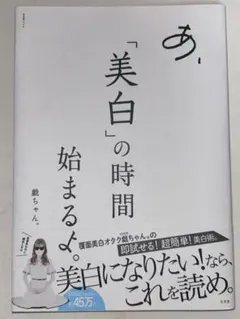 あ、
「美白」の時間
始まるよ。
戯ちゃん。
覆面美白オタク戯ちゃん。の
即試せる!超簡単!美白術。
美白になりたい!なら、
これを読め。
45万